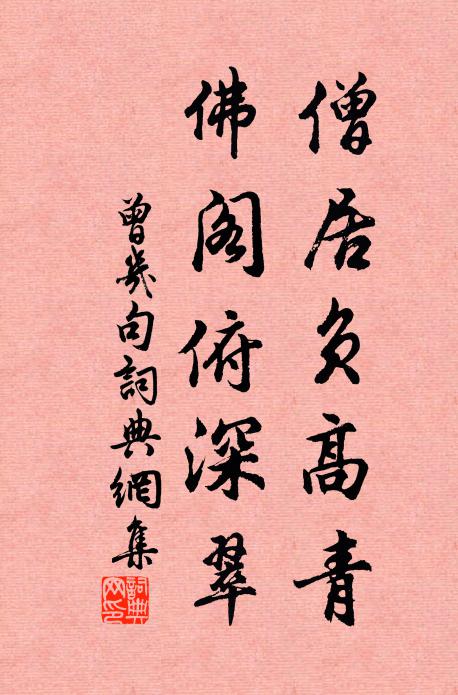 僧居負高青
佛阁俯深翠
曾幾句詞典網集
詞典網印